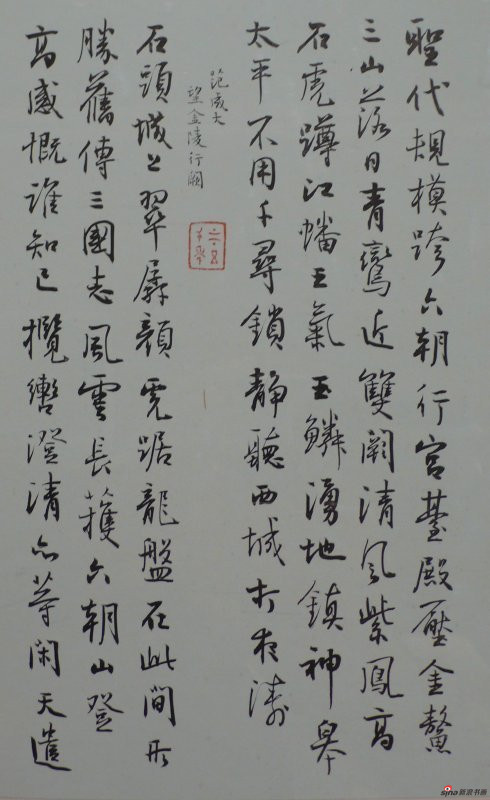 聖代規模跨六朝行宮臺殿壓金鰲
三山落日青鸞近雙闕清風紫鳳高
石虎蹲江蟠王氣玉鱗湧地鎮神皋
太平不用千尋鎖靜聽西城打夜濤
范成大
望金陵行闕
石頭城上翠屏顏虎踞龍盤在此間形
勝舊傳三國志風雲長護六朝山登
高感慨誰知己攬轡澄清亦等閑天遣
sina新浪书画